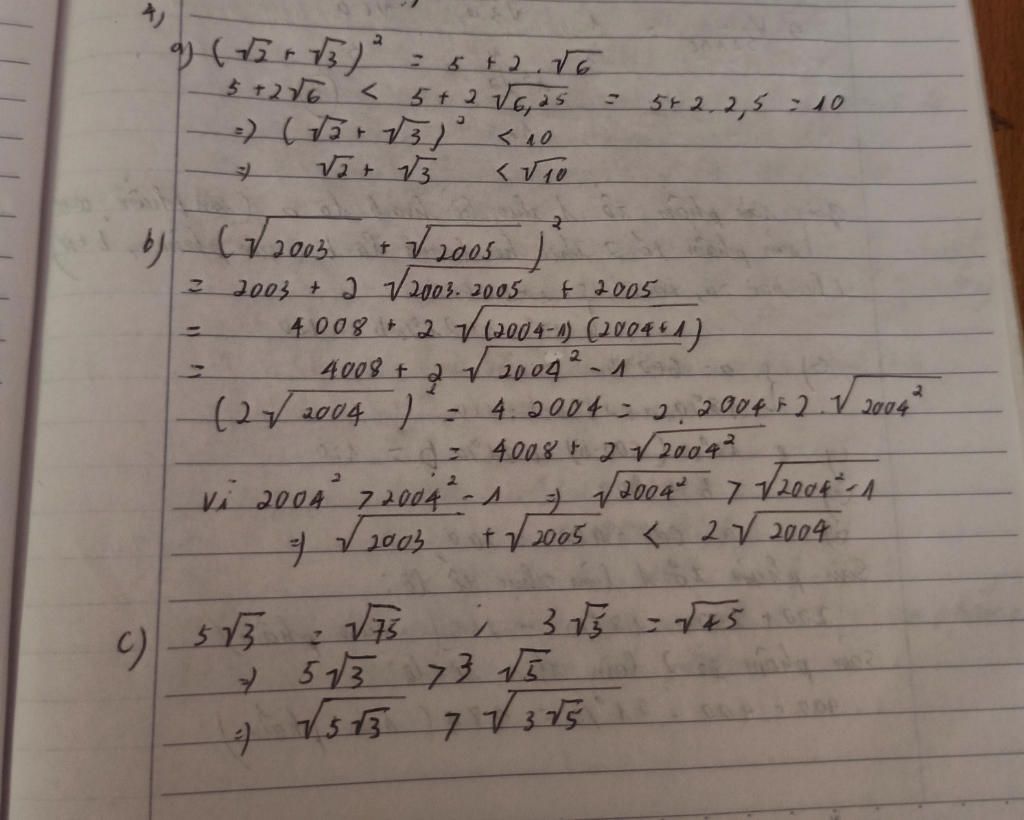 4,
a) (√2 + √3)² = 5 + 2.√6
5+2√6 < 5+2√6,25 = 5+2.2,5 = 10
=) (√2 + √3)² < 10
=) √2 + √3 < √10
b) (√2003 + √2005)²
= 2003 + 2 √2003.2005 + 2005
= 4008 + 2 √(2004-1)(2004+1)
= 4008 + 2 √2004² - 1
(2√2004)² = 4.2004 = 2.2004 + 2.√2004²
= 4008 + 2√2004²
Vì 2004² > 2004² - 1 =) √2004² > √2004² - 1
=) √2003 + √2005 < 2√2004
c) 5√3 = √75 ; 3√5 = √45
=) 5√3 > 3√5
=) √5√3 > √3√5